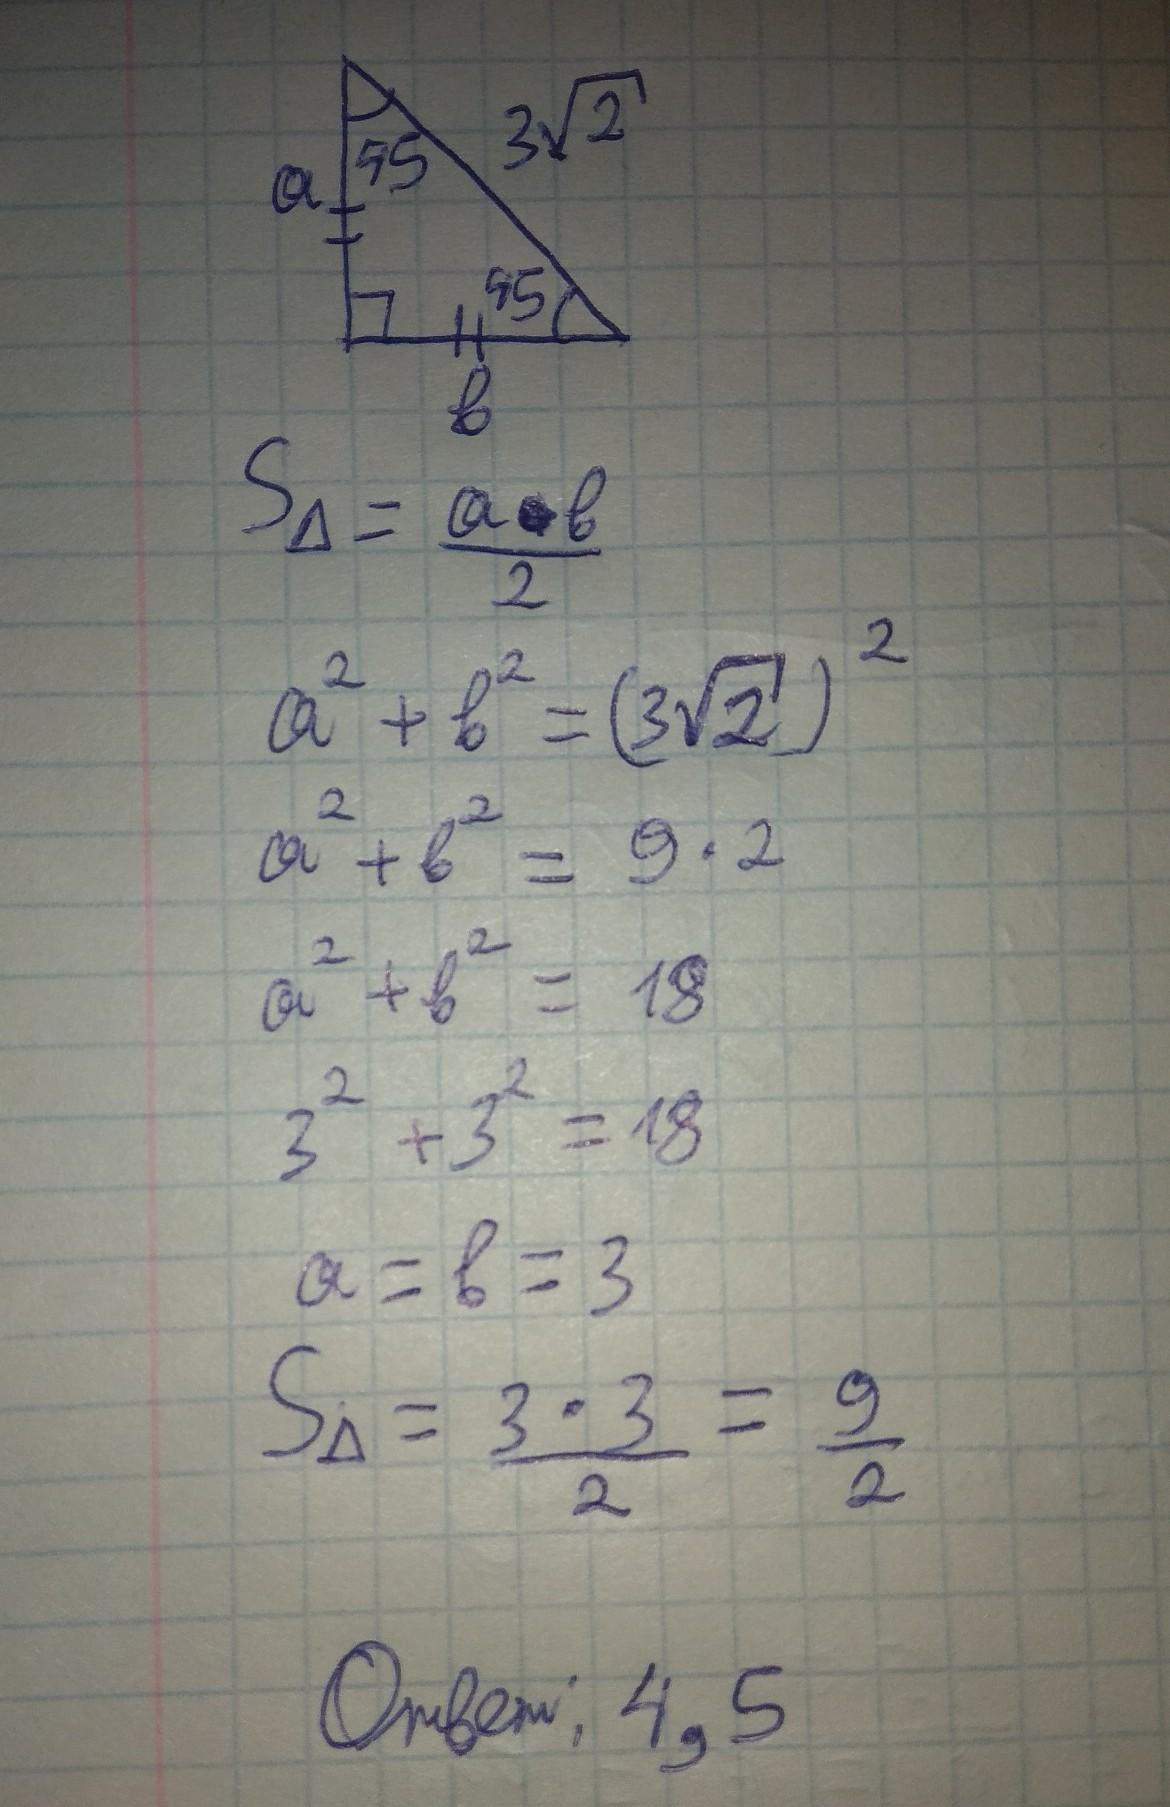 3√2
a
45
45
b
S△ = a·b/2
a² + b² = (3√2)²
a² + b² = 9·2
a² + b² = 18
3² + 3² = 18
a = b = 3
S△ = 3·3/2 = 9/2
Ответ: 4,5